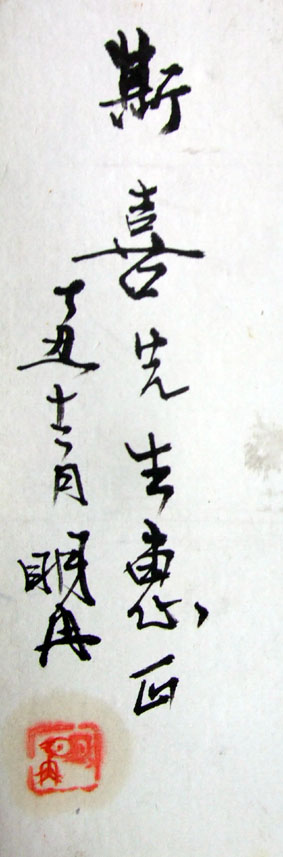 斯喜先生惠正
丁丑十二月
明冉